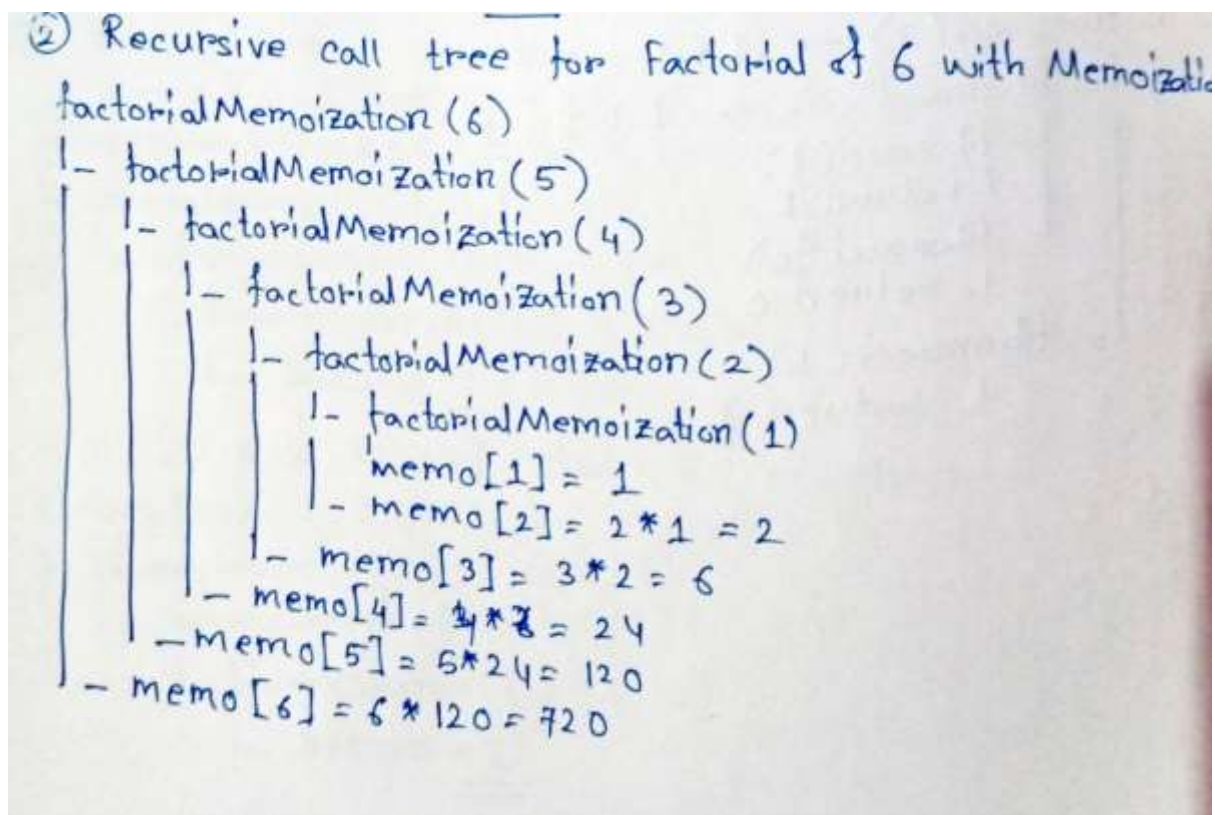 ② Recursive call tree for Factorial of 6 with Memoizatio
factorialMemoization (6)
|- factorialMemoization (5)
|- factorialMemoization (4)
|- factorialMemoization (3)
|- factorialMemoization (2)
|- factorialMemoization (1)
memo[1] = 1
|- memo[2] = 2 * 1 = 2
|- memo[3] = 3 * 2 = 6
|- memo[4] = 4 * 6 = 24
|- memo[5] = 5 * 24 = 120
|- memo[6] = 6 * 120 = 720